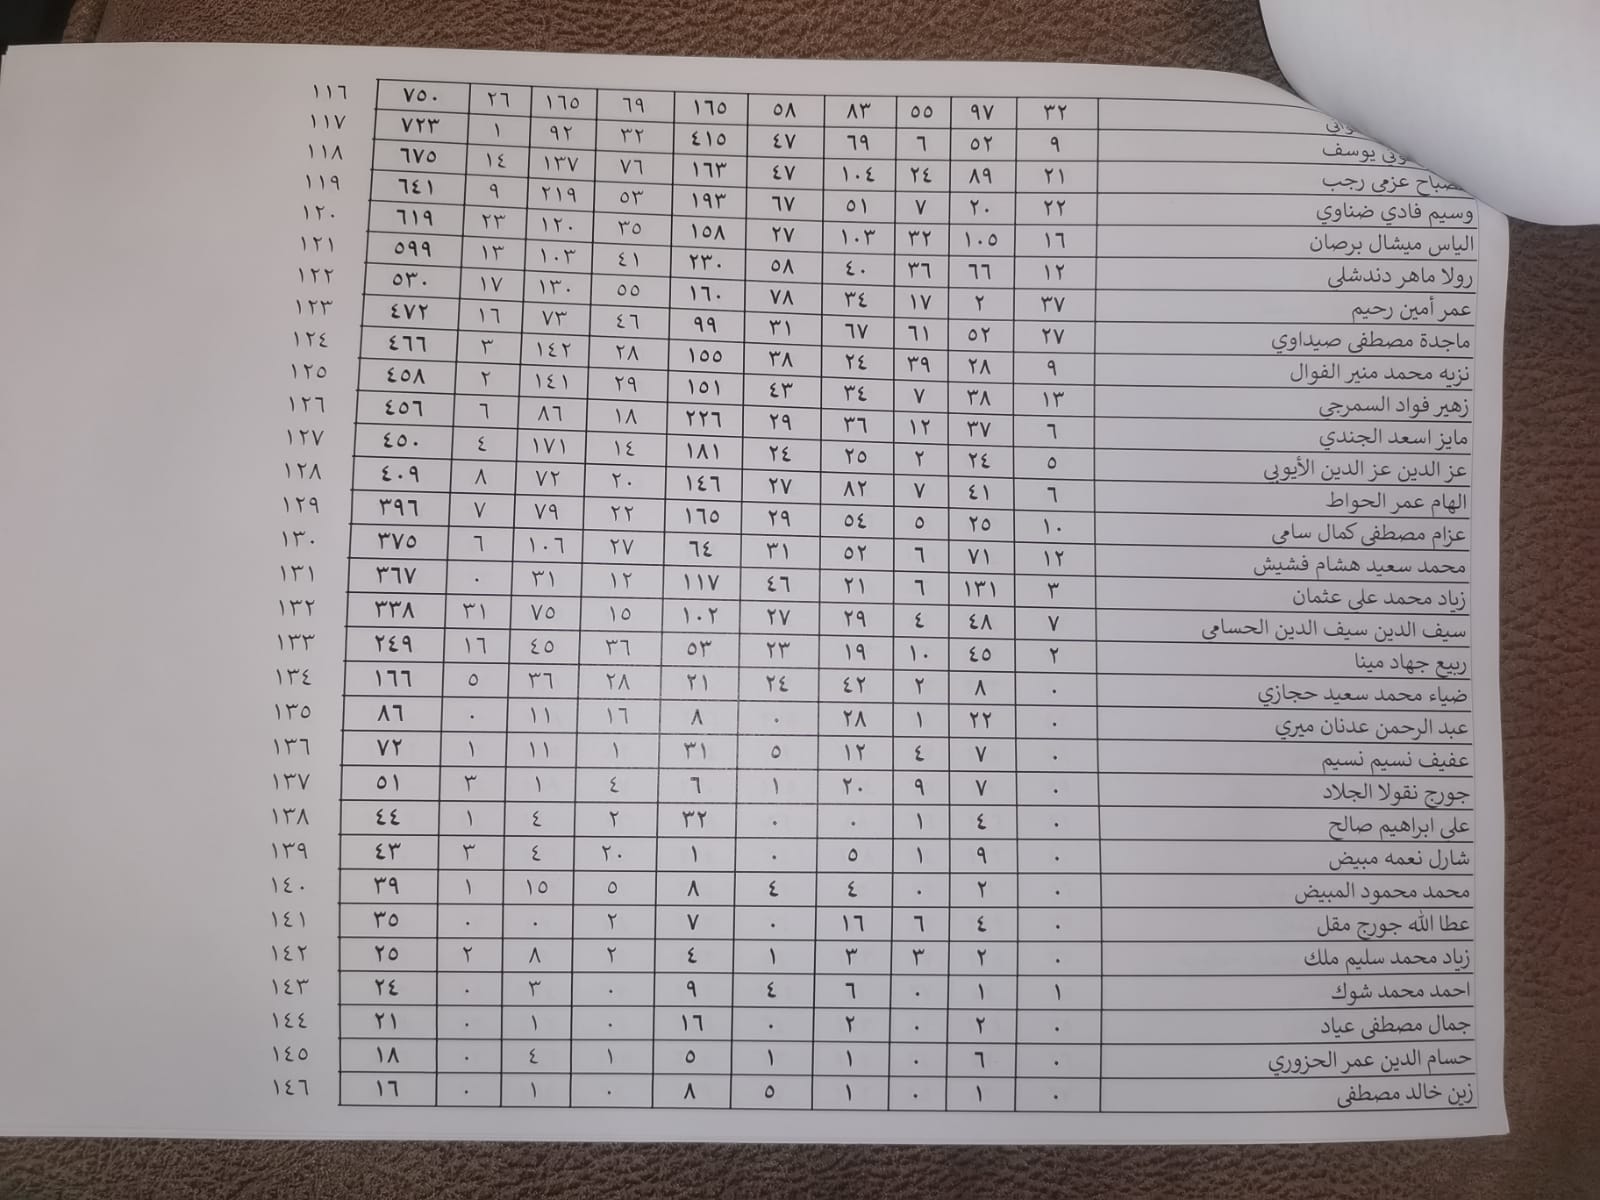 ٣٢ ٩٧ ٥٥ ٨٣ ٥٨ ١٦٥ ٦٩ ١٦٥ ٢٦ ٧٥٠ ١١٦
يوسف ٩ ٥٢ ٦ ٦٩ ٤٧ ٤١٥ ٣٢ ٩٢ ١ ٧٢٣ ١١٧
مصباح عزمي رجب ٢١ ٨٩ ٢٤ ١٠٤ ٤٧ ١٦٣ ٧٦ ١٣٧ ١٤ ٦٧٥ ١١٨
وسيم فادي ضناوي ٢٢ ٢٠ ٧ ٥١ ٦٧ ١٩٣ ٥٣ ٢١٩ ٩ ٦٤١ ١١٩
الياس ميشال برصان ١٦ ١٠٥ ٣٢ ١٠٣ ٢٧ ١٥٨ ٣٥ ١٢٠ ٢٣ ٦١٩ ١٢٠
رولا ماهر دندشلي ١٢ ٦٦ ٣٦ ٤٠ ٥٨ ٢٣٠ ٤١ ١٠٣ ١٣ ٥٩٩ ١٢١
عمر أمين رحيم ٣٧ ٢ ١٧ ٣٤ ٧٨ ١٦٠ ٥٥ ١�٠ ١٧ ٥٣٠ ١٢٢
ماجدة مصطفى صيداوي ٢٧ ٥٢ ٦١ ٦٧ ٣١ ٩٩ ٤٦ ٧٣ ١٦ ٤٧٢ ١٢٣
نزيه محمد منير الفوال ٩ ٢٨ ٣٩ ٢٤ ٣٨ ١٥٥ ٢٨ ١٤٢ ٣ ٤٦٦ ١٢٤
زهير فواد السمرجي ١٣ ٣٨ ٧ ٣٤ ٤٣ ١٥١ ٢٩ ١٤١ ٢ ٤٥٨ ١٢٥
مايز اسعد الجندي ٦ ٣٧ ١٢ ٣٦ ٢٩ ٢٢٦ ١٨ ٨٦ ٦ ٤٥٦ ١٢٦
عز الدين عز الدين الأيوبي ٥ ٢٤ ٢ ٢٥ ٢٤ ١٨١ ١٤ ١٧١ ٤ ٤٥٠ ١٢٧
الهام عمر الحواط ٦ ٤١ ٧ ٨٢ ٢٧ ١٤٦ ٢٠ ٧٢ ٨ ٤٠٩ ١٢٨
عزام مصطفى كمال سامي ١٠ ٢٥ ٥ ٥٤ ٢٩ ١٦٥ ٢٢ ٧٩ ٧ ٣٩٦ ١٢٩
محمد سعيد هشام فشيش ١٢ ٧١ ٦ ٥٢ ٣١ ٦٤ ٢٧ ١٠٦ ٦ ٣٧٥ ١٣٠
زياد محمد علي عثمان ٣ ١٣١ ٦ ٢١ ٤٦ ١١٧ ١٢ ٣١ ٠ ٣٦٧ ١٣١
سيف الدين سيف الدين الحسامي ٧ ٤٨ ٤ ٢٩ ٢٧ ١٠٢ ١٥ ٧٥ ٣١ ٣٣٨ ١٣٢
ربيع جهاد مينا ٢ ٤٥ ١٠ ١٩ ٢٣ ٥٣ ٣٦ ٤٥ ١٦ ٢٤٩ ١٣٣
ضياء محمد سعيد حجازي ٠ ٨ ٢ ٤٢ ٢٤ ٢١ ٢٨ ٣٦ ٥ ١٦٦ ١٣٤
عبد الرحمن عدنان ميري ٠ ٢٢ ١ ٢٨ ٠ ٨ ١٦ ١١ ٠ ٨٦ ١٣٥
عفيف نسيم نسيم ٠ ٧ ٤ ١٢ ٥ ٣١ ١ ١١ ١ ٧٢ ١٣٦
جورج نقولا الجلاد ٠ ٧ ٩ ٢٠ ١ ٦ ٤ ١ ٣ ٥١ ١٣٧
علي ابراهيم صالح ٠ ٤ ١ ٠ ٠ ٣٢ ٢ ٤ ١ ٤٤ ١٣٨
شارل نعمه مبيض ٠ ٩ ١ ٥ ٠ ١ ٢٠ ٤ ٣ ٤٣ ١٣٩
محمد محمود المبيض ٠ ٢ ٠ ٤ ٤ ٨ ٥ ١٥ ١ ٣٩ ١٤٠
عطا الله جورج مقل ٠ ٤ ٦ ١٦ ٠ ٧ ٢ ٠ ٠ ٣٥ ١٤١
زياد محمد سليم ملك ٠ ٢ ٣ ٣ ١ ٤ ٢ ٨ ٢ ٢٥ ١٤٢
احمد محمد شوك ١ ١ ٠ ٦ ٤ ٩ ٠ ٣ ٠ ٢٤ ١٤٣
جمال مصطفى عياد ٠ ٢ ٠ ٢ ٠ ١٦ ٠ ١ ٠ ٢١ ١٤٤
حسام الدين عمر الحزوري ٠ ٦ ٠ ١ ١ ٥ ١ ٤ ٠ ١٨ ١٤٥
زين خالد مصطفى ٠ ١ ٠ ١ ٥ ٨ ٠ ١ ٠ ١٦ ١٤٦